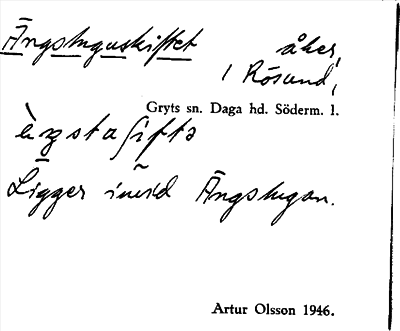 Ängstuguskiftet åker,
i Rösund,
Gryts sn. Daga hd. Söderm. l.
Ligger invid Ängstugan.
Artur Olsson 1946.